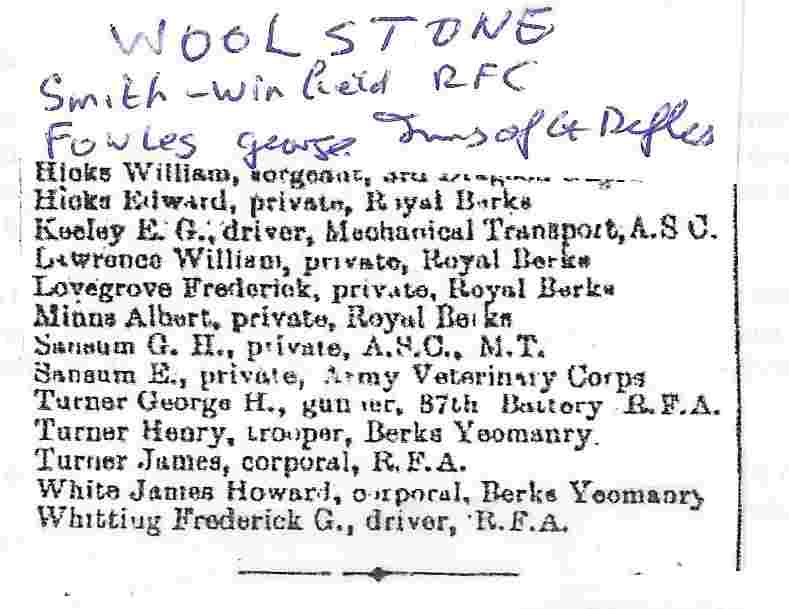 WOOLSTONE
Smith - Winfield RFC
Fowles George
Hicks William, sergeant, 3rd Dragoon
Hicks Edward, private, Royal Berks
Keeley E. G., driver, Mechanical Transport, A.S C.
Lawrence William, private, Royal Berks
Lovegrove Frederick, private, Royal Berks
Minns Albert, private, Royal Berks
Sansum G. H., private, A.S.C., M.T.
Sansum E., private, Army Veterinary Corps
Turner George H., gunner, 87th Battery R.F.A.
Turner Henry, trooper, Berks Yeomanry.
Turner James, corporal, R.F.A.
White James Howard, corporal, Berks Yeomanry
Whitting Frederick G., driver, R.F.A.